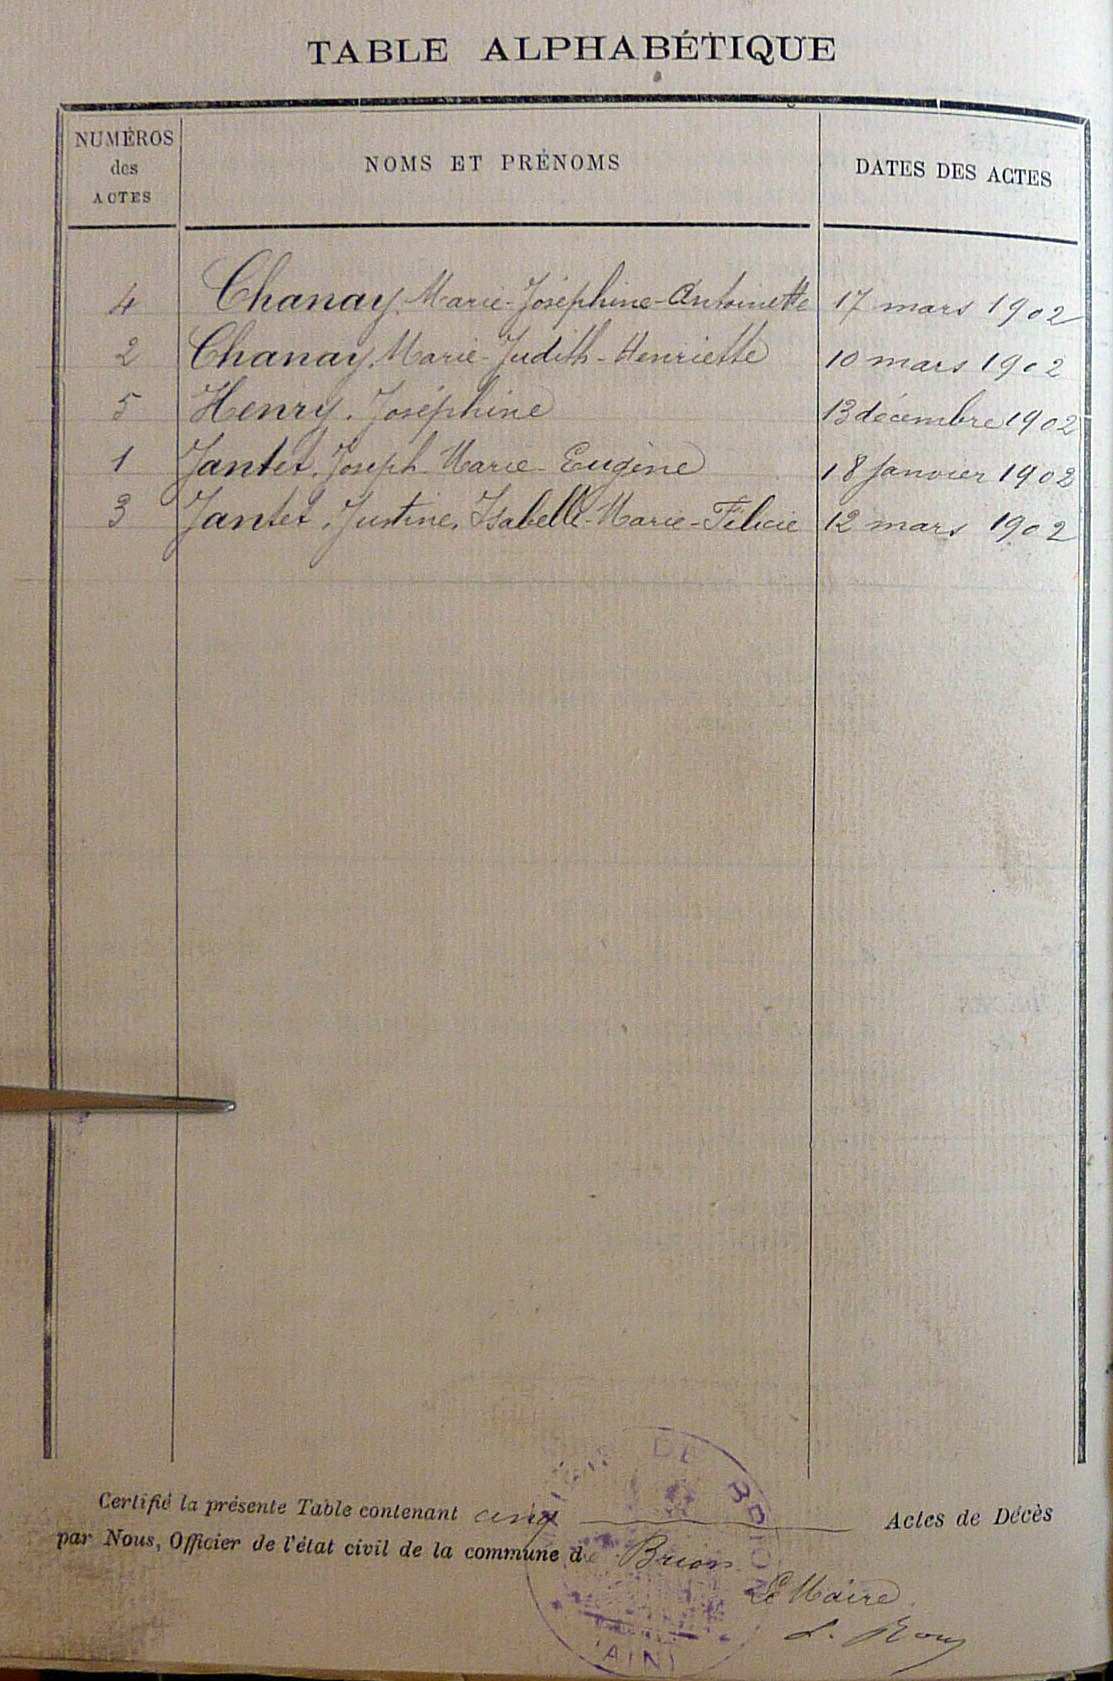 TABLE ALPHABÉTIQUE
NUMÉROS des ACTES NOMS ET PRÉNOMS DATES DES ACTES
4 Chanay. Marie-Joséphine-Antoinette 17 mars 1902
2 Chanay. Marie-Judith-Henriette 10 mars 1902
5 Henry. Joséphine 13 décembre 1902
1 Jantet. Joseph-Marie-Eugène 18 Janvier 1902
3 Jantet. Justine, Isabelle-Marie-Félicie 12 mars 1902
Certifié la présente Table contenant cinq Actes de Décès
par Nous, Officier de l'état civil de la commune de Brion
DE BRION
Le Maire
(AIN)